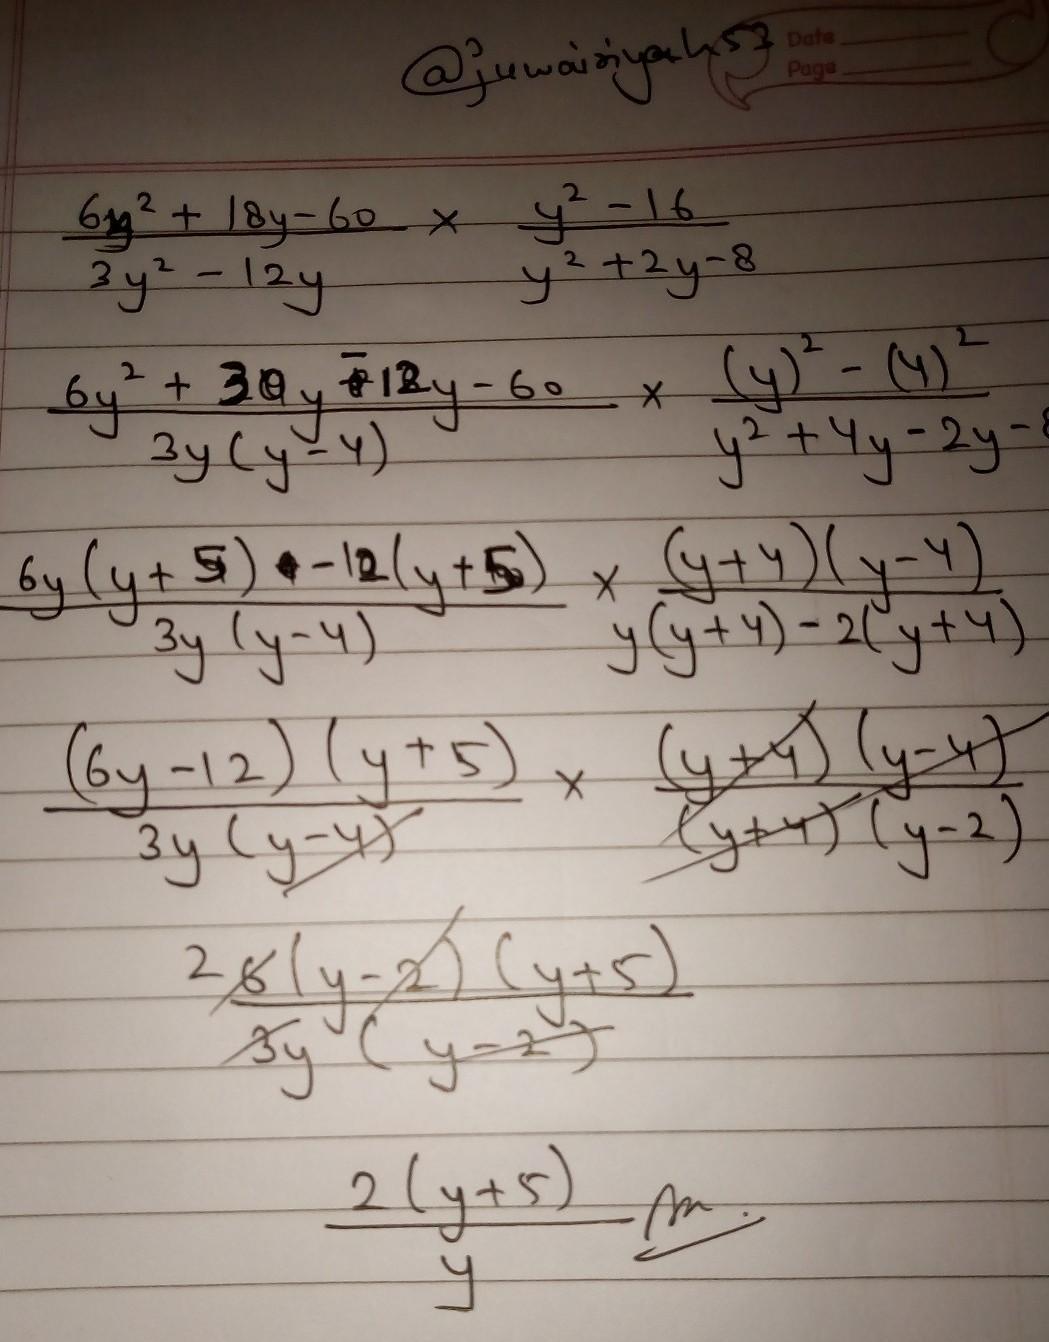 @juwairiyah53
Date
Page
6y² + 18y - 60 / 3y² - 12y × y² - 16 / y² + 2y - 8
6y² + 30y - 12y - 60 / 3y(y - 4) × (y)² - (4)² / y² + 4y - 2y - 8
6y(y + 5) - 12(y + 5) / 3y(y - 4) × (y + 4)(y - 4) / y(y + 4) - 2(y + 4)
(6y - 12)(y + 5) / 3y(y - 4) × (y + 4)(y - 4) / (y + 4)(y - 2)
2 6(y - 2)(y + 5) / 3y(y - 2)
2(y + 5) / y